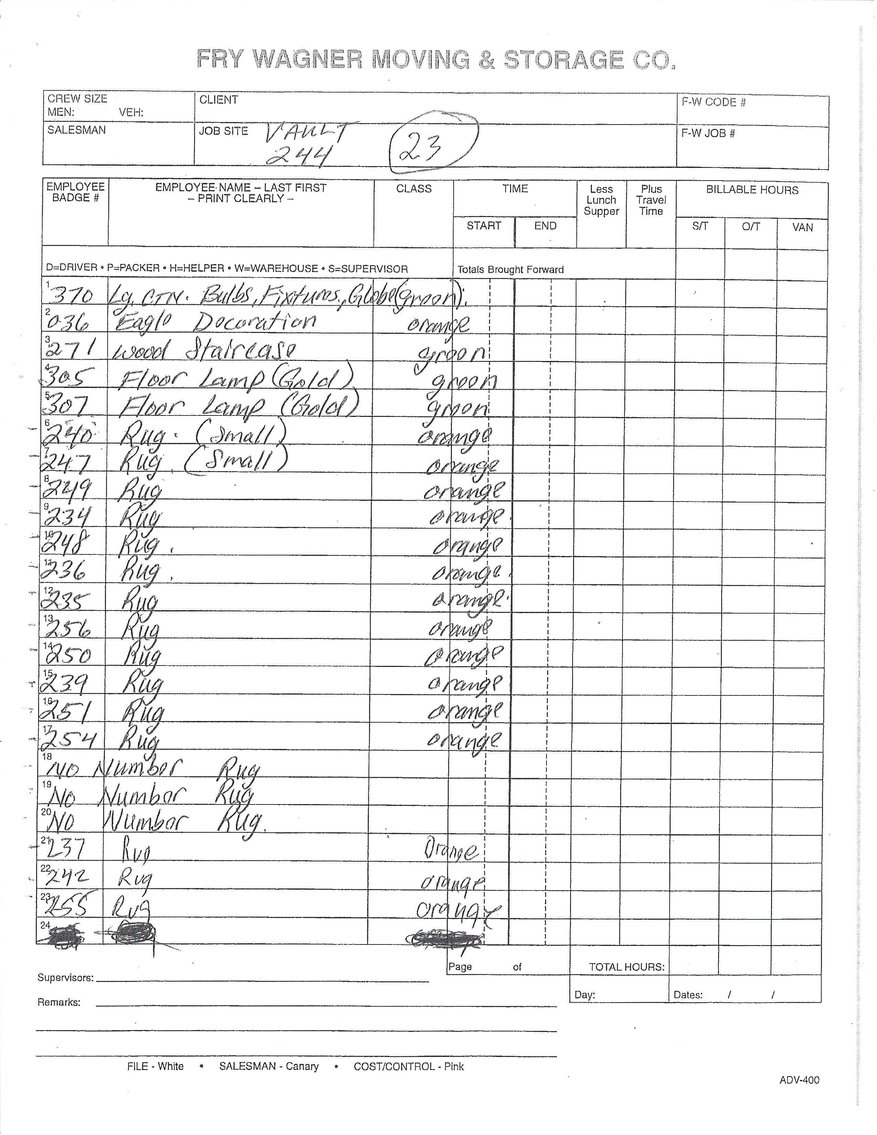 FRY WAGNER MOVING & STORAGE CO.
CREW SIZE
MEN: VEH:
CLIENT
F-W CODE #
SALESMAN
JOB SITE VAULT
244
23
F-W JOB #
EMPLOYEE BADGE #
EMPLOYEE NAME – LAST FIRST
– PRINT CLEARLY –
CLASS
TIME
START END
Less Lunch Supper
Plus Travel Time
BILLABLE HOURS
S/T O/T VAN
D=DRIVER • P=PACKER • H=HELPER • W=WAREHOUSE • S=SUPERVISOR Totals Brought Forward
1 370 Lg. CTN. Bulbs, Fixtures, Globe (green).
2 036 Eagle Decoration orange
3 271 Wood Staircase green
4 305 Floor Lamp (Gold) green
5 307 Floor Lamp (Gold) green
6 240 Rug. (Small) orange
7 247 Rug. (Small) orange
8 249 Rug orange
9 234 Rug orange.
10 248 Rug. orange
11 236 Rug. orange.
12 235 Rug orange.
13 256 Rug orange
14 250 Rug orange
15 239 Rug orange
16 251 Rug orange
17 254 Rug orange
18 No Number Rug
19 No Number Rug
20 No Number Rug.
21 237 Rug Orange
22 242 Rug orange
23 255 Rug orange
24
Page of TOTAL HOURS:
Supervisors:
Remarks:
Day: Dates: / /
FILE - White • SALESMAN - Canary • COST/CONTROL - Pink
ADV-400